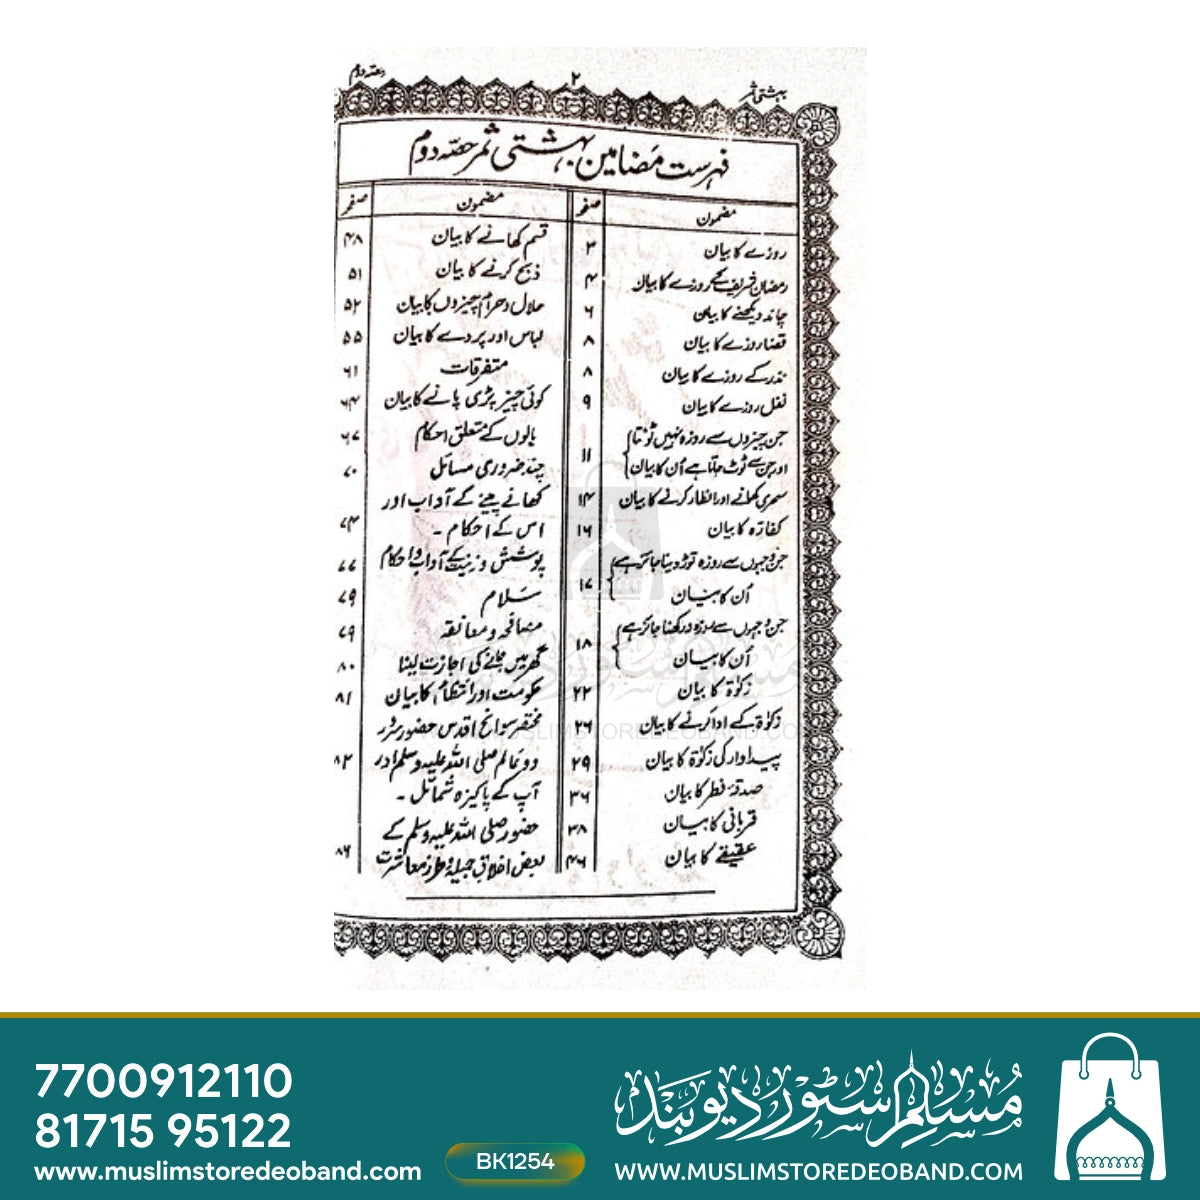 بہشتی ثمر
۲
حصہ دوم
فہرست مضامین بہشتی ثمر حصہ دوم
مضمون صفحہ
روزے کا بیان ۳
رمضان شریف کے روزے کا بیان ۴
چاند دیکھنے کا بیان ۶
قضا روزے کا بیان ۸
نذر کے روزے کا بیان ۸
نفل روزے کا بیان ۹
جن چیزوں سے روزہ نہیں ٹوٹتا
اور جن سے ٹوٹ جاتا ہے اُن کا بیان ۱۱
سحری کھانے اور افطار کرنے کا بیان ۱۴
کفارہ کا بیان ۱۶
جن وجہوں سے روزہ توڑ دینا جائز ہے
اُن کا بیان ۱۷
جن وجہوں سے روزہ نہ رکھنا جائز ہے
اُن کا بیان ۱۸
زکوٰۃ کا بیان ۲۲
زکوٰۃ کے ادا کرنے کا بیان ۲۶
پیداوار کی زکوٰۃ کا بیان ۲۹
صدقۂ فطر کا بیان ۳۶
قربانی کا بیان ۳۸
عقیقے کا بیان ۴۶
مضمون صفحہ
قسم کھانے کا بیان ۴۸
ذبح کرنے کا بیان ۵۱
حلال و حرام چیزوں کا بیان ۵۲
لباس اور پردے کا بیان ۵۵
متفرقات ۶۱
کوئی چیز پڑی پانے کا بیان ۶۴
بالوں کے متعلق احکام ۶۷
چند ضروری مسائل ۷۰
کھانے پینے کے آداب اور
اس کے احکام ۔ ۷۴
پوشش و زینت کے آداب و احکام ۷۷
سلام ۷۹
مصافحہ و معانقہ ۷۹
گھر میں جانے کی اجازت لینا ۸۰
حکومت اور انتظام کا بیان ۸۱
مختصر سوانح اقدس حضور سرور
دو عالم صلی اللہ علیہ وسلم اور ۸۲
آپ کے پاکیزہ شمائل ۔
حضور صلی اللہ علیہ وسلم کے
بعض اخلاقِ جمیلہ و طرز معاشرت ۸۶
مسلم سٹور دیوبند
MUSLIMSTOREDEOBAND.COM
7700912110
81715 95122
www.muslimstoredeoband.com
BK1254
مسلم سٹور دیوبند
WWW.MUSLIMSTOREDEOBAND.COM